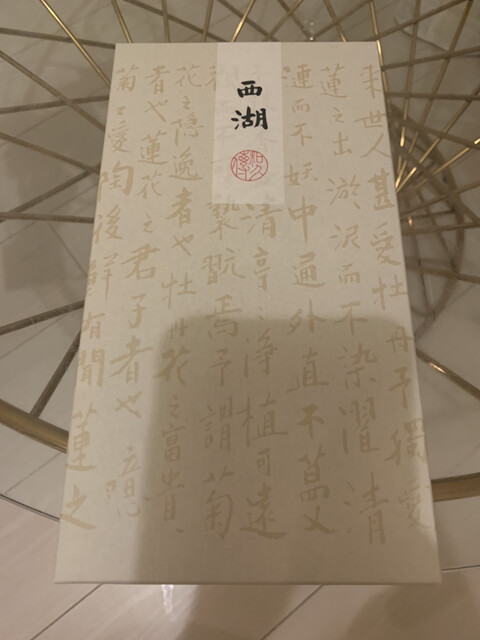 西湖
和久傳
来世人甚愛牡丹予獨愛
蓮之出淤泥而不染濯清
漣而不妖中通外直不蔓
清亭之淨植可遠
褻翫焉予謂菊
花之隠逸者也牡丹花之富貴
者也蓮花之君子者也
菊之愛陶後鮮有聞蓮之